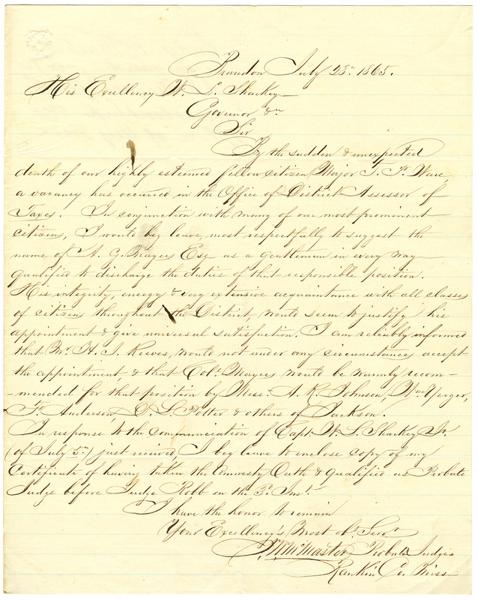 Brandon July 25th 1865.
His Excellency W. L. Sharkey
Govenor &c
Sir
By the sudden & unexpected
death of our highly esteemed fellow citizen Major T. P. Ware
a vacancy has occured in the Office of District Assessor of
Taxes. In conjunction with many of our most prominent
citizens, I would beg leave, most respectfully to suggest the
name of A. G. Mayers Esq as a gentleman in every way
qualified to discharge the duties of that responsible position.
His integrity, energy & very extensive acquaintance with all classes
of citizens throughout the District, would seem to justify his
appointment & give universal satisfaction. I am reliably informed
that Mr. H. J. Reeves, would not under any circumstances accept
the appointment, & that Col. Mayers would be warmly recom-
mended for that position by Mess. A. R. Johnson, Wm Yerger,
F. Anderson, D. L. Potter & others of Jackson.
In response to the communication of Capt. W. L. Sharkey Jr.
(of July 5th) just received, I beg leave to enclose copy of my
Certificate of having taken the Amnesty Oath & qualified as Probate
Judge before Judge Robb on the Inst.
I have the honor to remain
Your Excellency's Most obt Servt
McMaster Probate Judge
Rankin Co. Miss